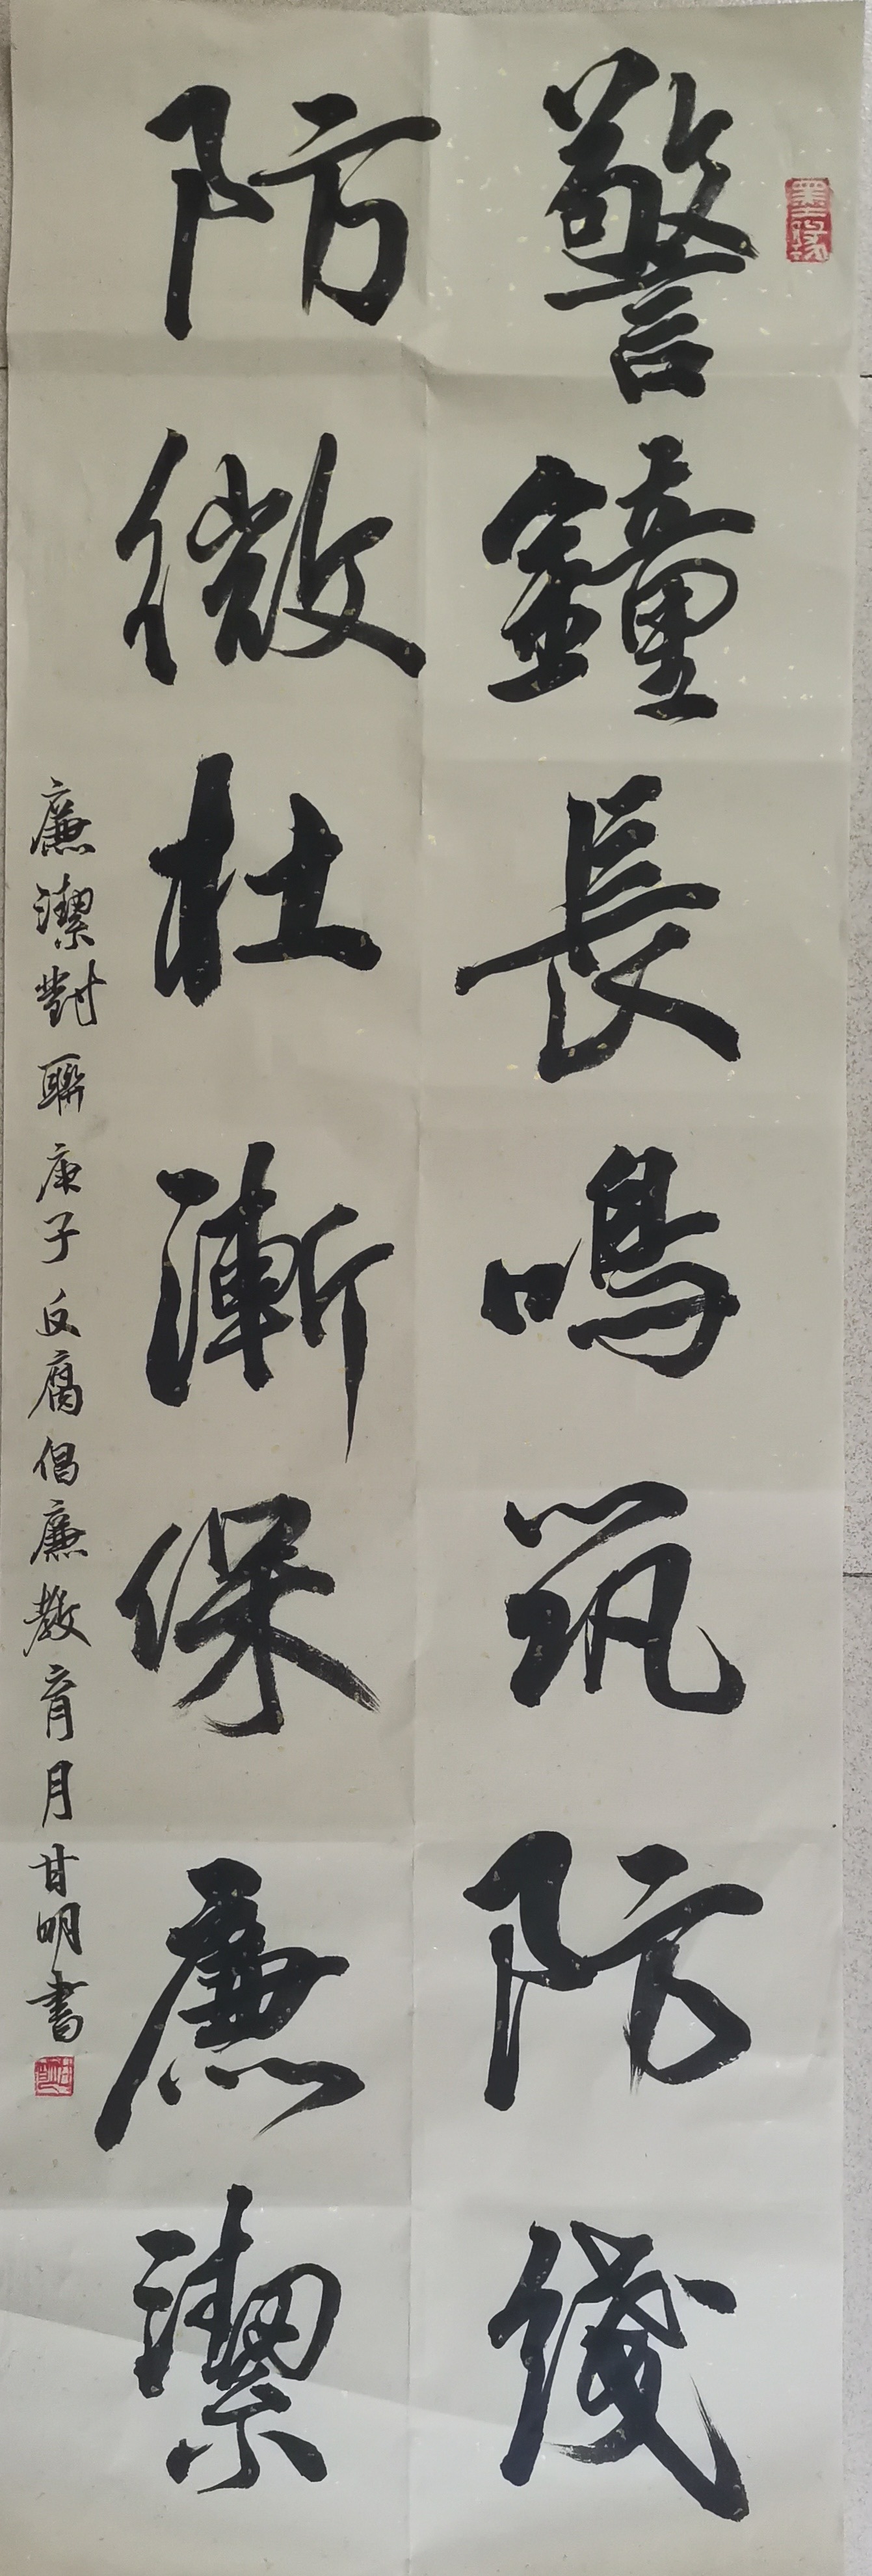 警鐘長鳴筑防綫
防微杜漸保廉潔
廉潔對聯庚子反腐倡廉教育月甘明書